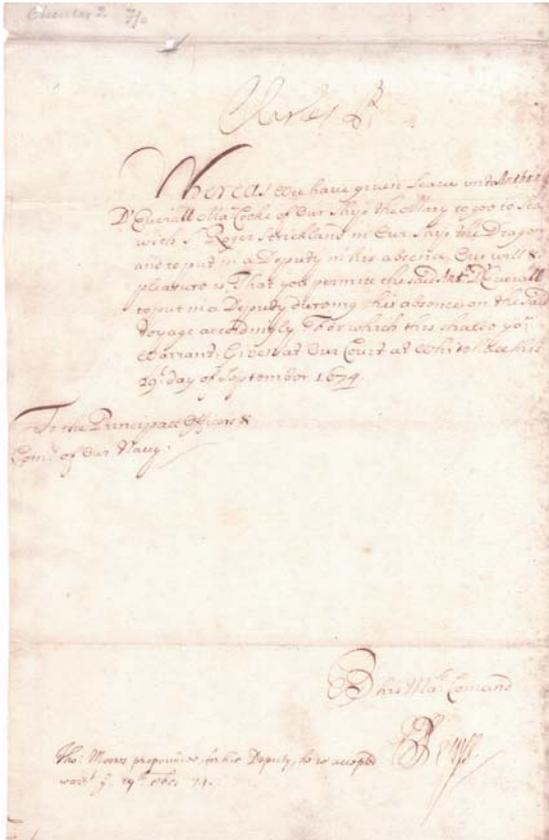 Charles 2. 7/0
Charles R
Whereas wee have given Leave unto Arthur
D'Everall Ma.r Cooke of Our Ship the Mary to goe to Sea
with S.r Roger Strickland in Our Ship the Dragon
and to put in a Deputy in his absence, Our will &
pleasure is, That you permit the said Art: D'Everall
to put in a Deputy dureing his absence on the said
Voyage accordingly For which this shalbe yo.r
Warrant. Given at Our Court at Whitehall this
29.th day of September 1674.
To the Principall Officers &
Com.rs of Our Navy.
By his Ma.ts Comand
S Pepys.
Tho: Morris propounded, for his Deputy, & is accepted
1674.